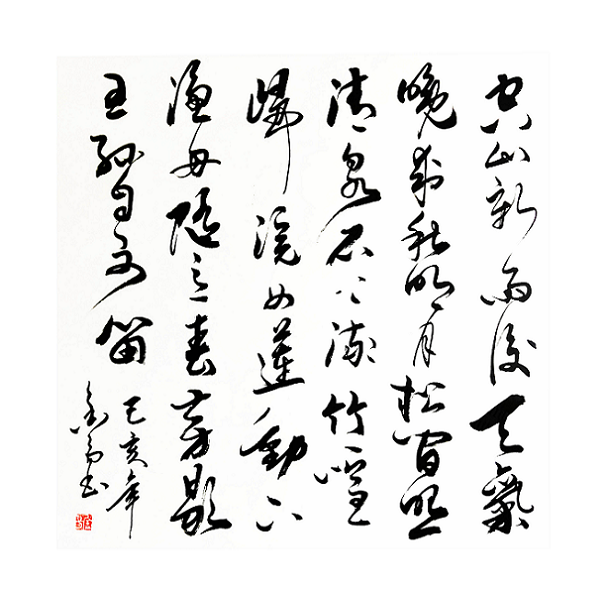 空山新雨後天氣
晚來秋明月松間照
清泉石上流竹喧
歸浣女蓮動下
漁舟隨意春芳歇
王孫自可留
己亥年
书